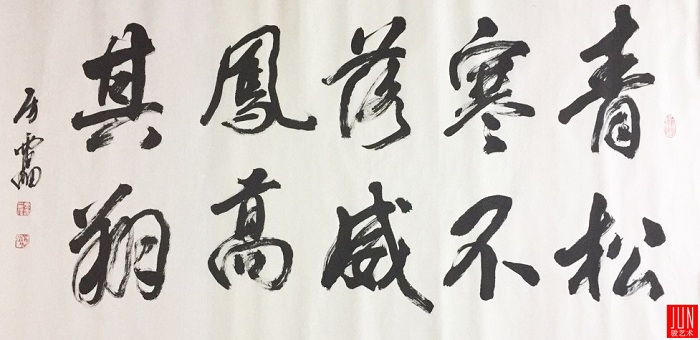 青松
寒不
落威
鳳高
其翔
JUN
骏艺术